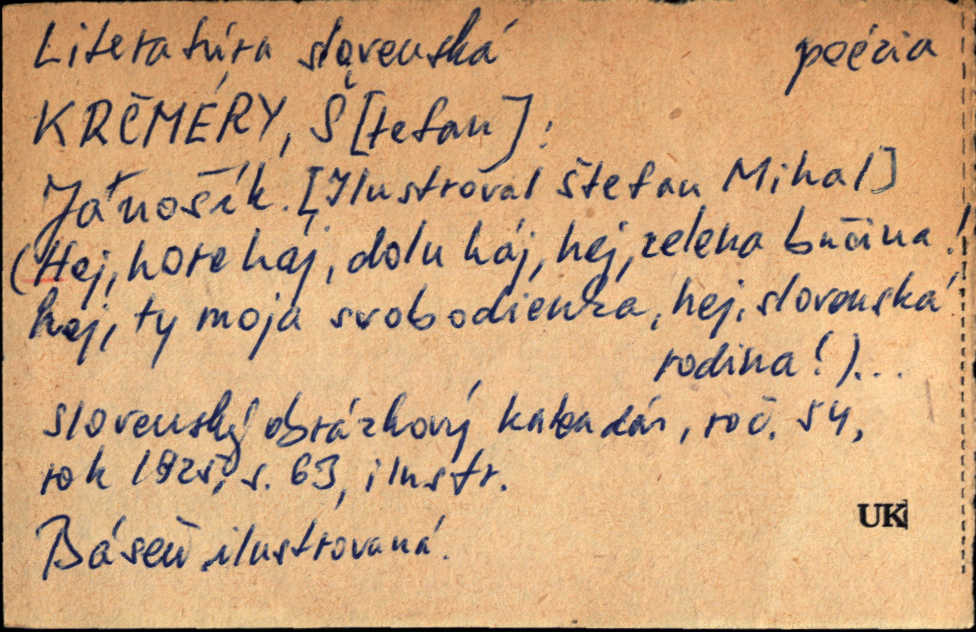 Literatúra slovenská poézia
KRČMÉRY, Š[tefan]:
Jánošík. [Ilustroval Štefan Mihal]
(Hej, hore háj, dolu háj, hej, zelena bučina!
hej, ty moja svobodienka, hej, slovenská
rodina!)...
Slovenský obrázkový kalendár, roč. 54,
rok 1925, s. 63, ilustr.
UK
Báseň ilustrovaná.